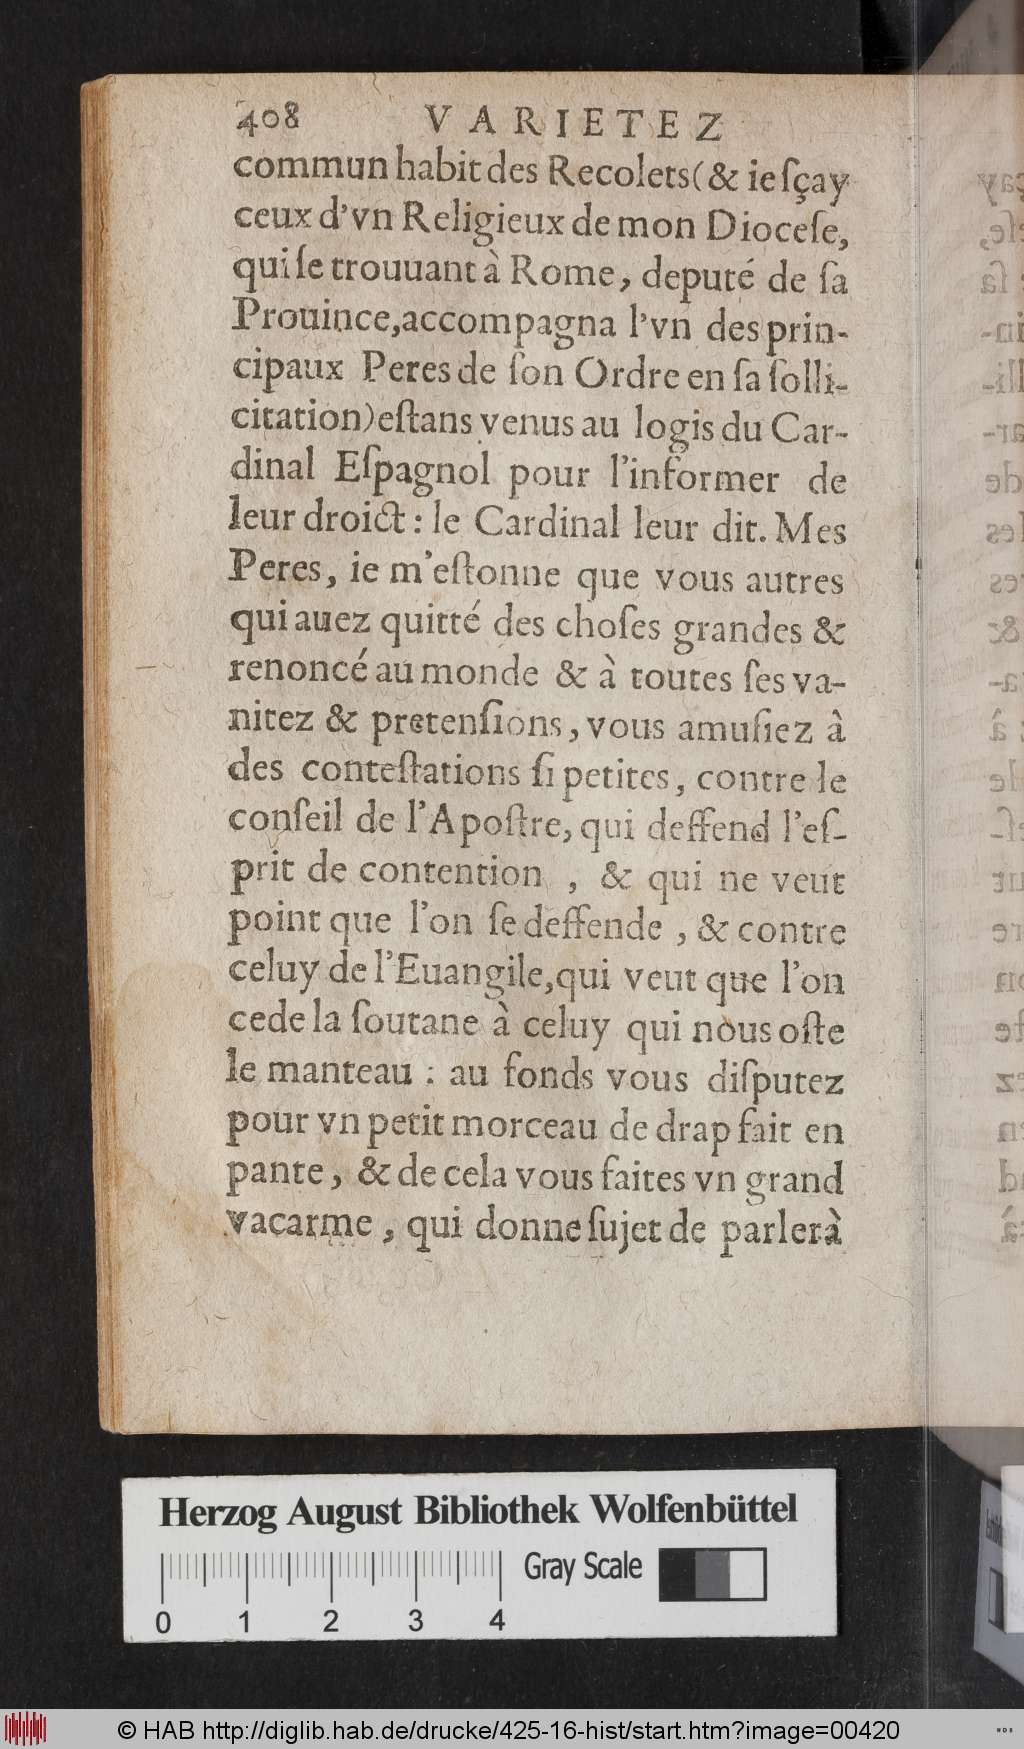 408 VARIETEZ
commun habit des Recolets (& ie ſçay
ceux d'vn Religieux de mon Dioceſe,
qui ſe trouuant à Rome, deputé de ſa
Prouince, accompagna l'vn des prin-
cipaux Peres de ſon Ordre en ſa ſolli-
citation) eſtans venus au logis du Car-
dinal Eſpagnol pour l'informer de
leur droict : le Cardinal leur dit. Mes
Peres, ie m'eſtonne que vous autres
qui auez quitté des choſes grandes &
renoncé au monde & à toutes ſes va-
nitez & pretenſions, vous amuſiez à
des conteſtations ſi petites, contre le
conſeil de l'Apoſtre, qui deffend l'eſ-
prit de contention , & qui ne veut
point que l'on ſe deffende , & contre
celuy de l'Euangile, qui veut que l'on
cede la ſoutane à celuy qui nous oſte
le manteau : au fonds vous diſputez
pour vn petit morceau de drap fait en
pante, & de cela vous faites vn grand
vacarme , qui donne ſujet de parler à
Herzog August Bibliothek Wolfenbüttel
Gray Scale
0 1 2 3 4
© HAB http://diglib.hab.de/drucke/425-16-hist/start.htm?image=00420